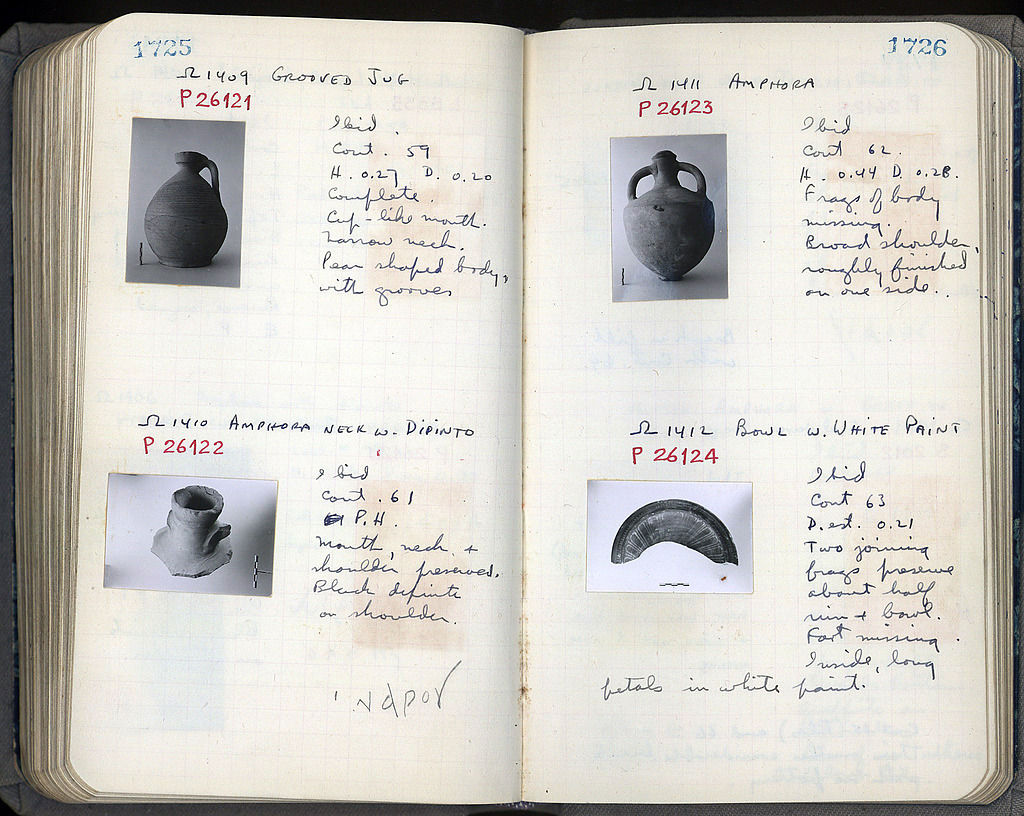 1725
Ω 1409 GROOVED JUG
P 26121
Ibid.
Cont. 59
H. 0.27 D. 0.20
Complete.
Cup-like mouth.
Narrow neck.
Pear shaped body,
with grooves
Ω 1410 AMPHORA NECK W. DIPINTO
P 26122
Ibid
Cont. 61
P.H.
Mouth, neck +
shoulder preserved.
Black dipinto
on shoulder.
1726
Ω 1411 AMPHORA
P 26123
Ibid
Cont 62.
H. 0.44 D. 0.28.
Frags of body
missing.
Broad shoulder,
roughly finished
on one side.
Ω 1412 BOWL W. WHITE PAINT
P 26124
Ibid
Cont 63
D. est. 0.21
Two joining
frags preserve
about half
rim + bowl.
Foot missing.
Inside, long
petals in white paint.